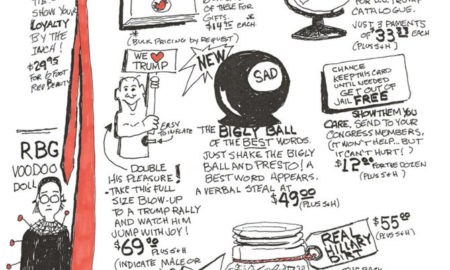 SHOW YOUR
LOYALTY
BY THE
INCH!
$29.95
FOR 6 FOOT
RED BEAUTY
RBG
VOODOO
DOLL
OF THESE FOR
GIFTS.
$14.95 EACH.
(BULK PRICING BY REQUEST)
WE
TRUMP
EASY
TO INFLATE
DOUBLE
HIS PLEASURE!
-TAKE THIS FULL
SIZE BLOW-UP
TO A TRUMP RALLY
AND WATCH HIM
JUMP WITH JOY!
$69.00
(PLUS S+H)
(INDICATE MALE OR
NEW
SAD
THE BIGLY BALL
OF THE BEST WORDS.
JUST SHAKE THE BIGLY
BALL AND PRESTO! A
BEST WORD APPEARS.
A VERBAL STEAL AT
$49.00
(PLUS S+H)
CATALOGUE.
JUST 3 PAYMENTS
OF $33.33
EACH
(PLUS S+H)
CHANCE
KEEP THIS CARD
UNTIL NEEDED
GET OUT OF
JAIL FREE
SHOW THEM YOU
CARE, SEND TO YOUR
CONGRESS MEMBERS,
(IT WON'T HELP... BUT
IT CAN'T HURT!)
$12.00 FOR THE DOZEN
(PLUS S+H)
REAL
HILLARY
DIRT
$55.00
(PLUS S+H)